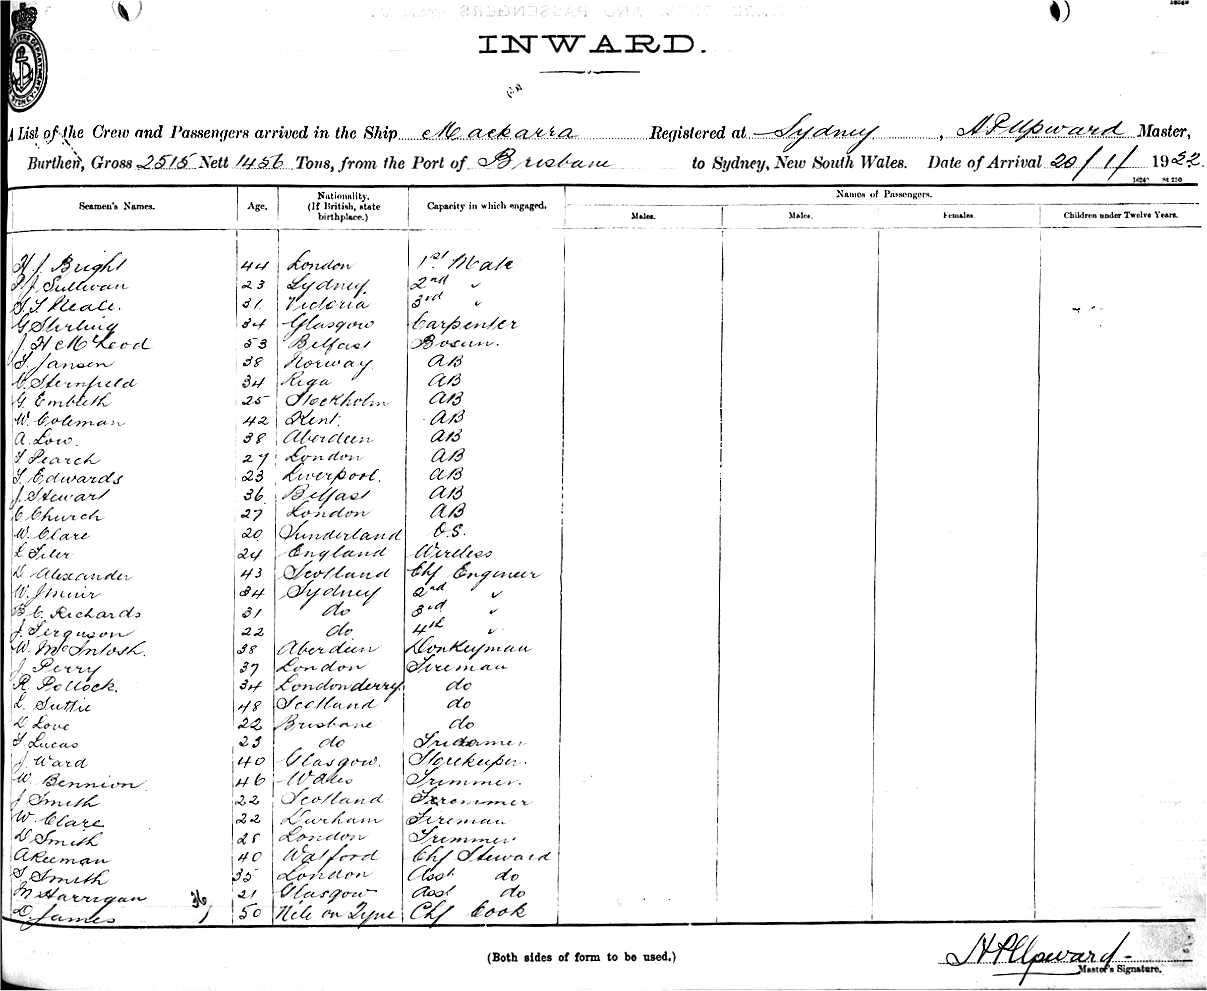 INWARD.
A List of the Crew and Passengers arrived in the Ship Mackarra Registered at Sydney, A P Upward Master,
Burthen, Gross 2515 Nett 1456 Tons, from the Port of Brisbane to Sydney, New South Wales. Date of Arrival 20/1/ 1922
Names of Passengers.
Seamen's Names. Age. Nationality. (If British, state birthplace.) Capacity in which engaged. Males. Males. Females. Children under Twelve Years.
H J Bright 44 London 1st Mate
P J Sullivan 23 Sydney 2nd "
S. T. Neale. 31 Victoria 3rd "
G Stirling 34 Glasgow Carpenter
J. H McLeod 53 Belfast Bosun.
T. Jansen 38 Norway AB
Sternfield 34 Riga AB
G. Embleth 25 Stockholm AB
W. Coleman 42 Kent. AB
A. Low. 38 Aberdeen AB
T Pearch 27 London AB
T. Edwards 23 Liverpool. AB
J. Stewart 36 Belfast AB
C Church 27 London AB
W. Clare 20 Sunderland O.S.
L Tiler 24 England Wireless
D Alexander 43 Scotland Chf Engineer
W. J Muir 34 Sydney 2nd "
B C. Richards 31 do 3rd "
J. Ferguson 22 do 4th "
W. McIntosh. 38 Aberdeen Donkeyman
J Perry 37 London Fireman
R. Pollock. 34 Londonderry do
L. Suttie 48 Scotland do
D Love 22 Brisbane do
T Lucas 23 do
J Ward 40 Glasgow. Storekeeper.
W Bennion 46 Wales Trimmer.
J Smith 22 Scotland Trimmer
W. Clare 22 Durham Fireman
D Smith 28 London Trimmer
A Keeman 40 Watford Chf Steward
T Smith 35 London Asst do
M Harrigan 21 Glasgow Asst do
36
D. James 50 on Tyne Chf Cook
(Both sides of form to be used.)
A P Upward
Master's Signature.